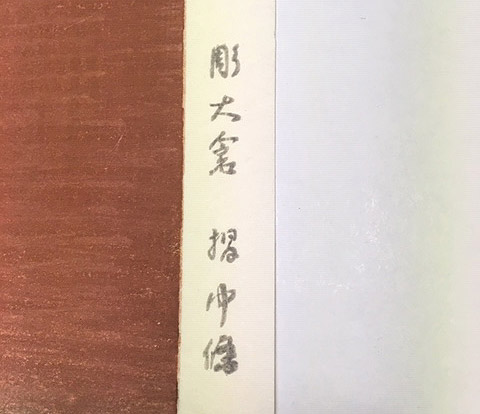 彫大倉 摺中條